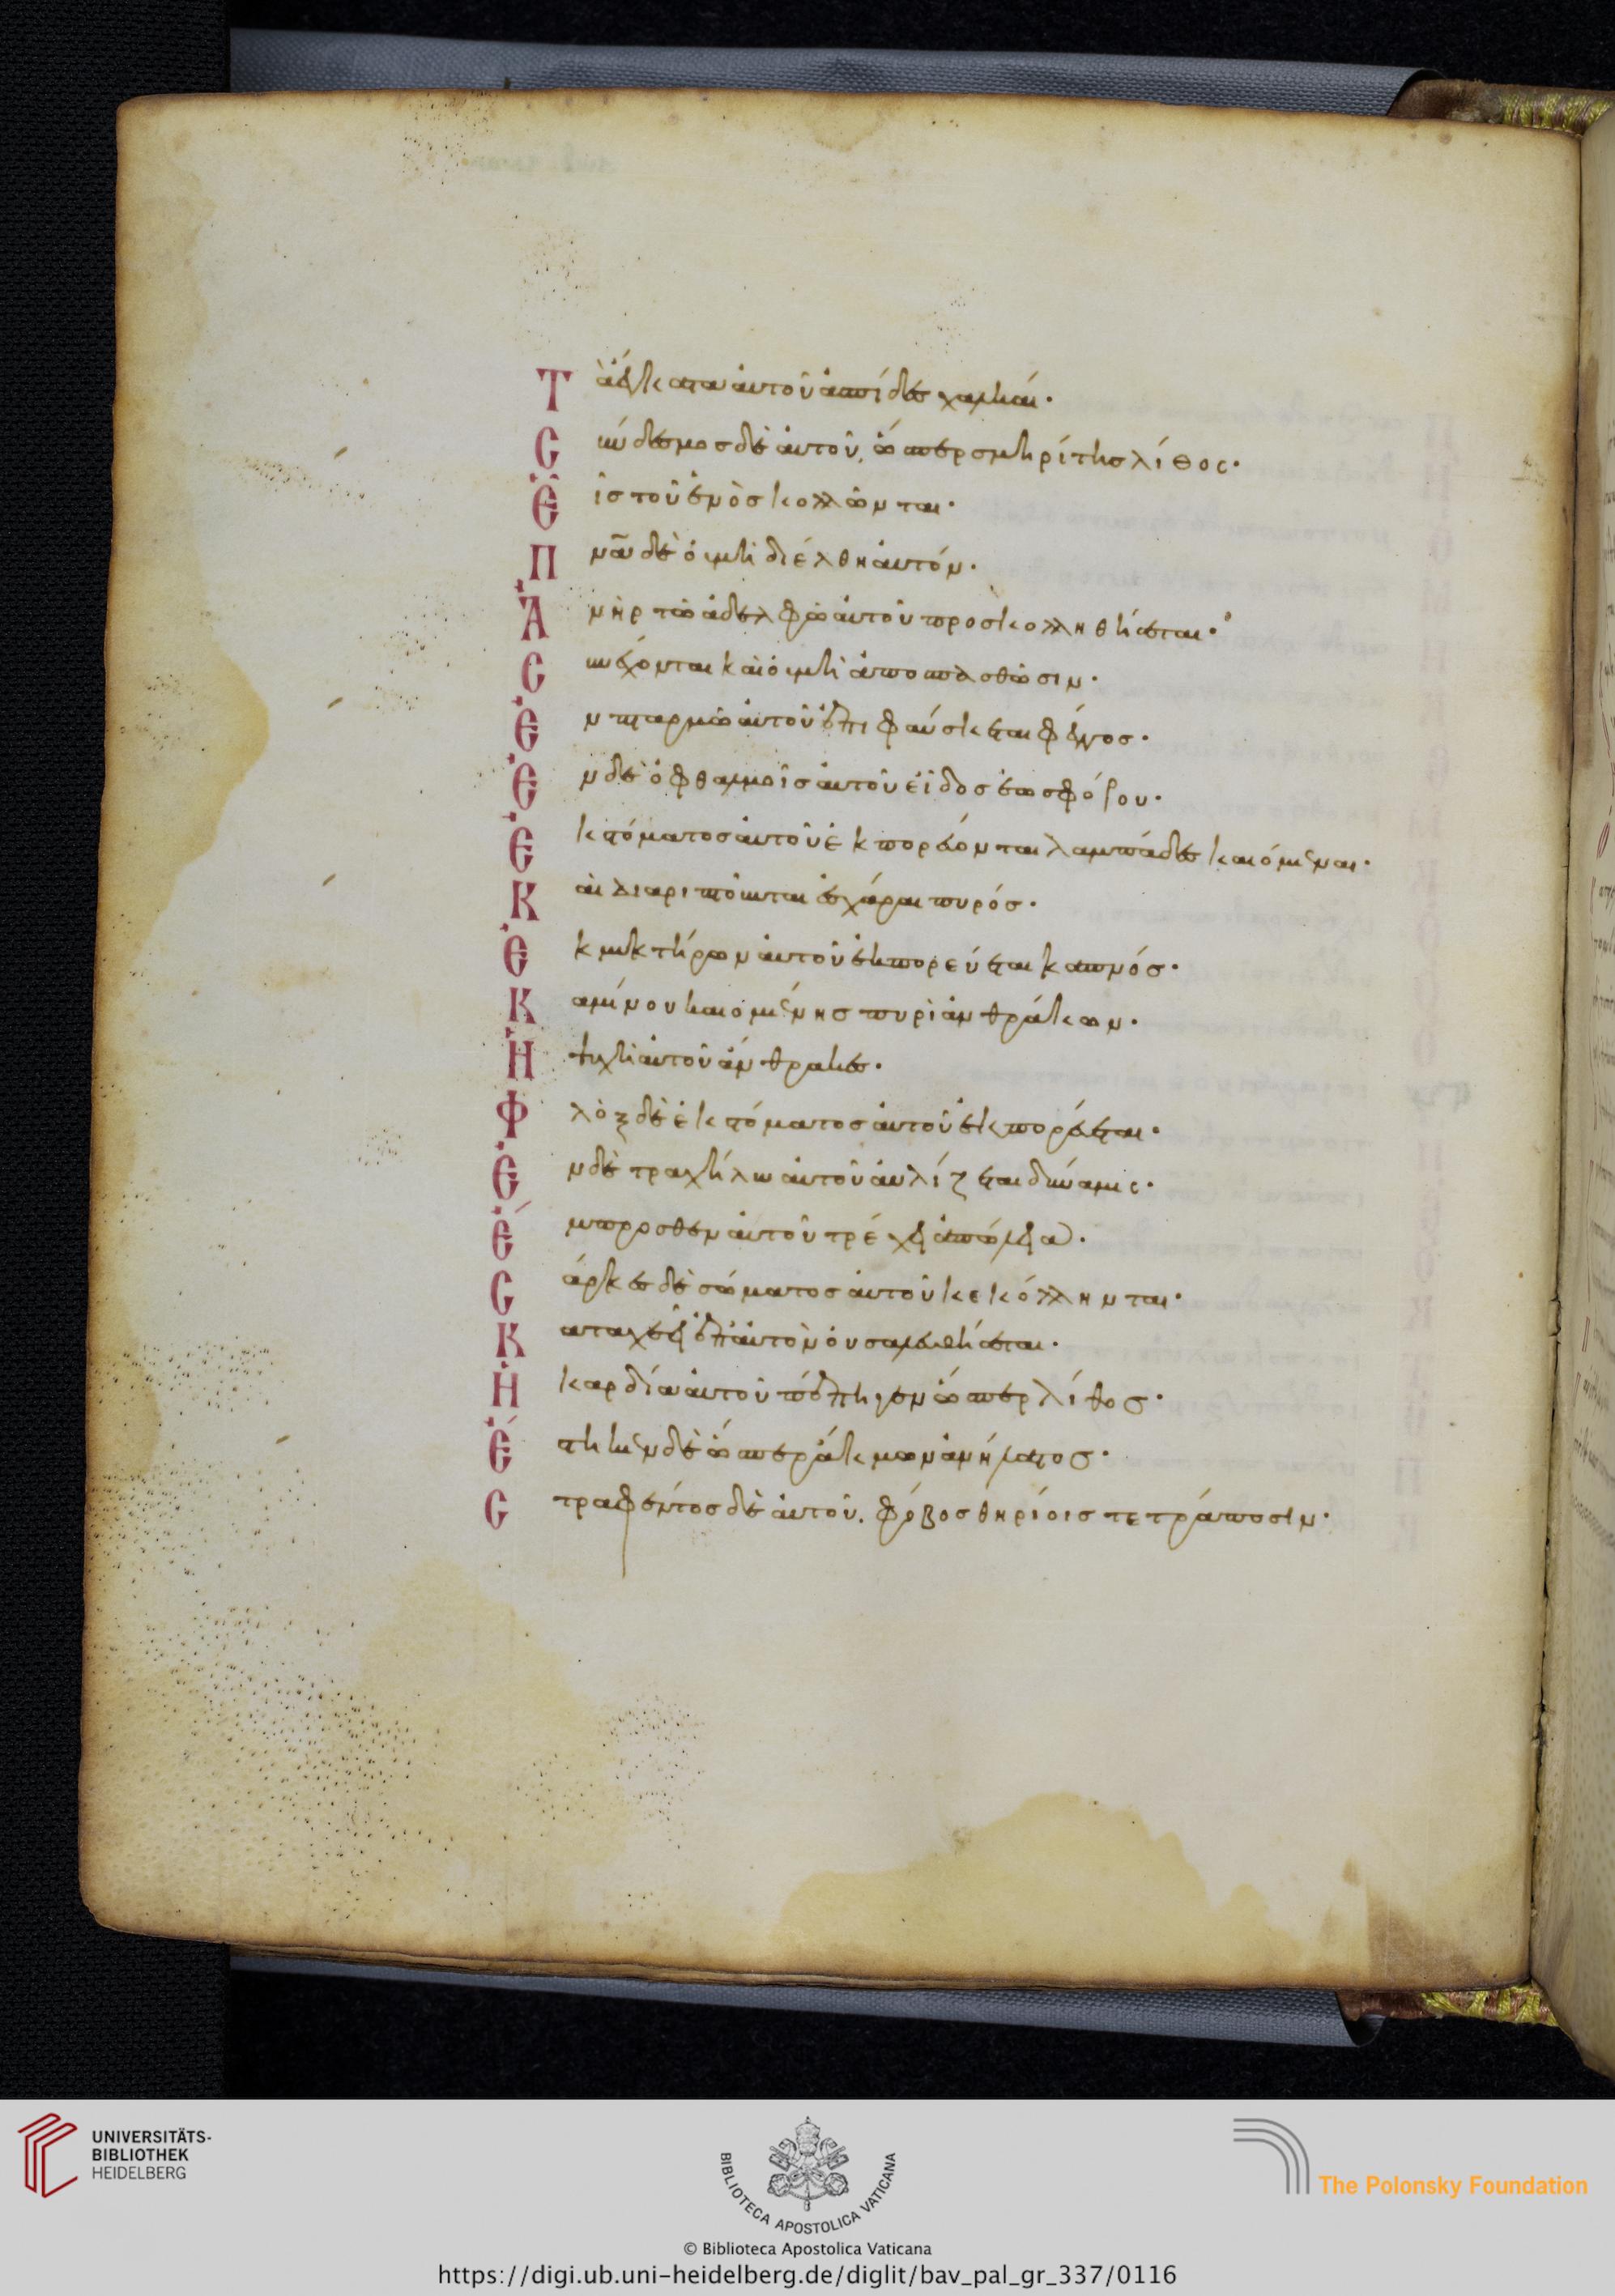 Τὰ ἔγκατα αὐτοῦ ἀσπίδες χαλκαῖ·
Σύνδεσμος δὲ αὐτοῦ, ὥσπερ σμηρίτης λίθος·
Εἷς τοῦ ἑνὸς κολλῶνται·
Πνᾶ δὲ οὐ μὴ διέλθη αὐτόν·
Ἀνὴρ τῶ ἀδελφῶ αὐτοῦ προσκολληθήσεται·
Συνέχονται καὶ οὐ μὴ ἀποσπασθῶσιν·
Ἐν πταρμῶ αὐτοῦ ἐπιφαύσκεται φέγγος·
Ἐν δὲ ὀφθαλμοῖς αὐτοῦ εἶδος ἑωσφόρου·
Ἐκ στόματος αὐτοῦ ἐκπορεύονται λαμπάδες καιόμεναι·
Καὶ διαριπτοῦνται ἐσχάραι πυρός·
Ἐκ μυκτήρων αὐτοῦ ἐκπορεύεται καπνός·
Καμίνου καιομένης πυρὶ ἀνθράκων·
Ἡ ψυχὴ αὐτοῦ ἄνθρακες·
Φλὸξ δὲ ἐκ στόματος αὐτοῦ ἐκπορεύεται·
Ἐν δὲ τραχήλω αὐτοῦ αὐλίζεται δύναμις·
Ἔμπροσθεν αὐτοῦ τρέχει ἀπώλεια·
Σάρκες δὲ σώματος αὐτοῦ κεκόλληνται·
Καταχέει ἐπ αὐτὸν οὐ σαλευθήσεται·
Ἡ καρδία αὐτοῦ πέπηγεν ὥσπερ λίθος·
Ἕστηκεν δὲ ὥσπερ ἄκμων ἀνήλατος·
Στραφέντος δὲ αὐτοῦ, φόβος θηρίοις τετράποσιν·
UNIVERSITÄTS-
BIBLIOTHEK
HEIDELBERG
BIBLIOTECA APOSTOLICA VATICANA
The Polonsky Foundation
© Biblioteca Apostolica Vaticana
https://digi.ub.uni-heidelberg.de/diglit/bav_pal_gr_337/0116